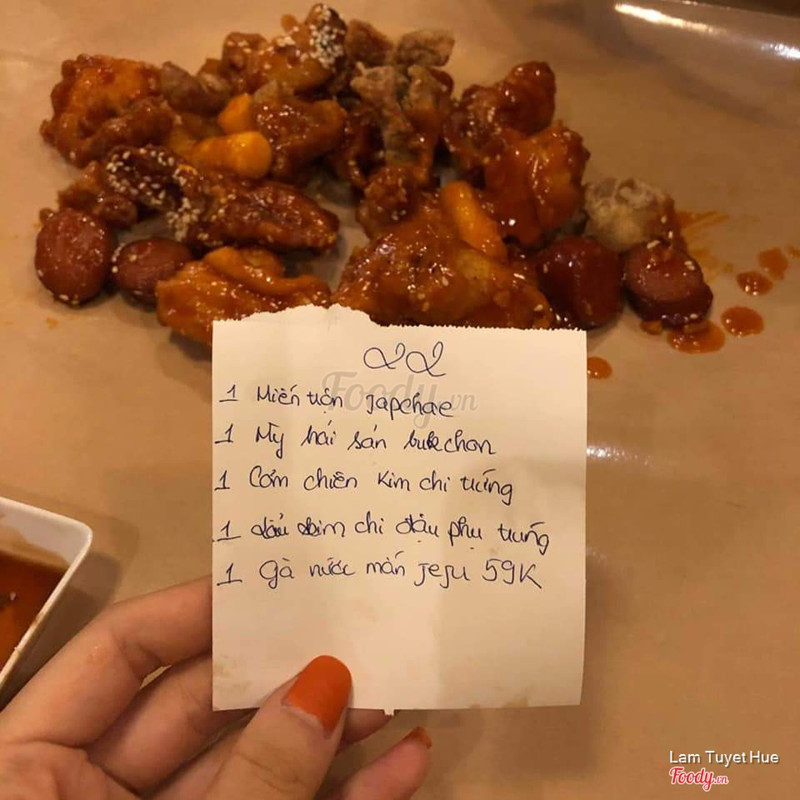 22
1 Miến trộn Japchae
1 Mỳ hải sản bukchon
1 Cơm chiên Kim chi trứng
1 lẩu kim chi đậu phụ trứng
1 gà nước mắn JeJu 59K
Foody.vn
Lam Tuyet Hue
Foody.vn